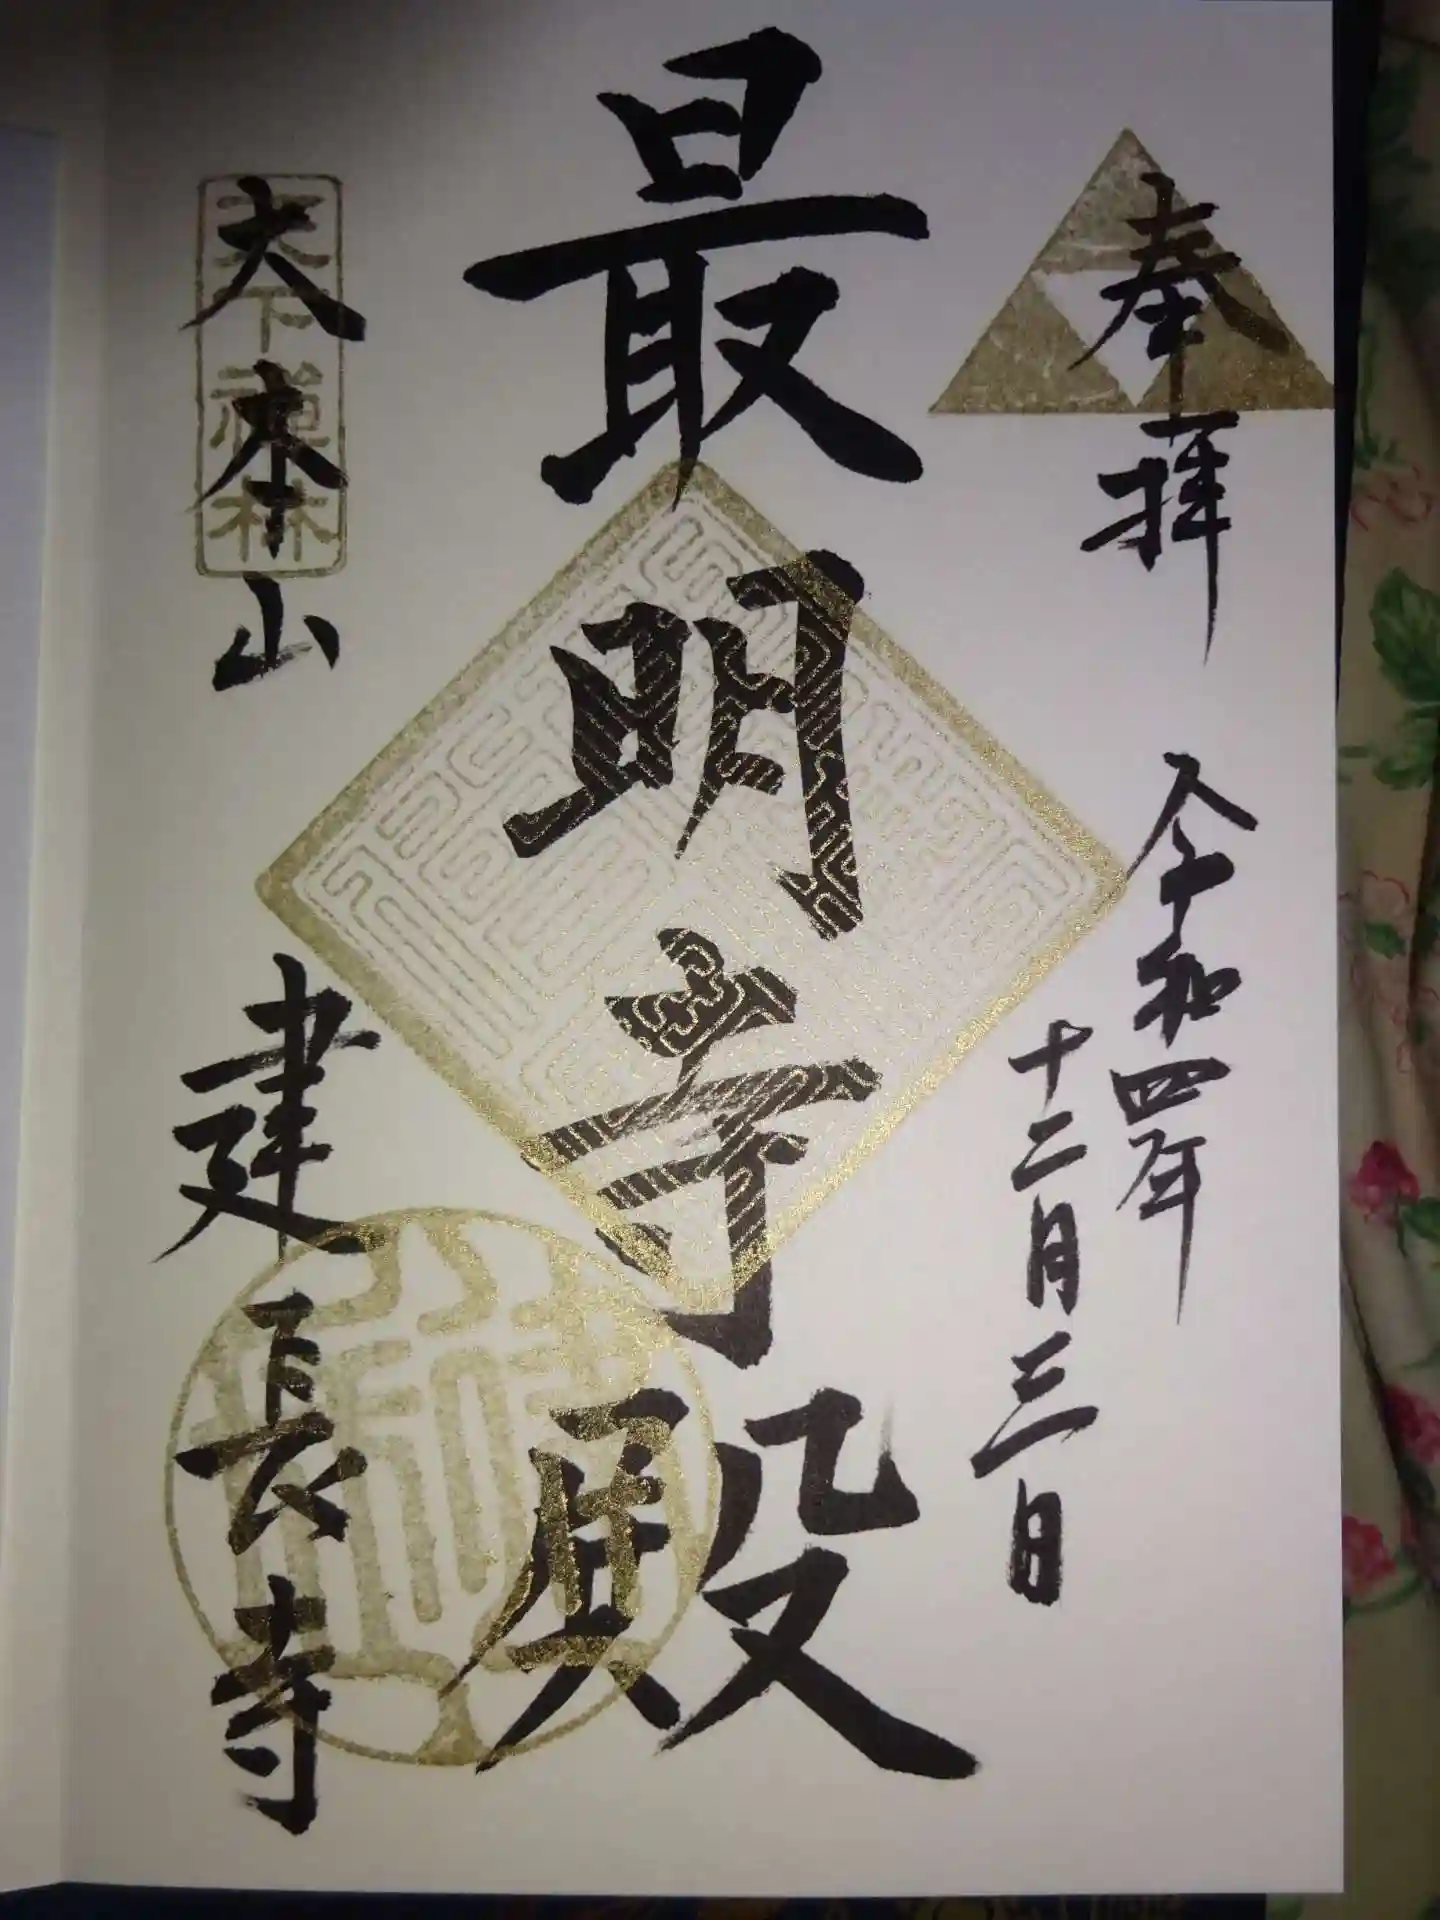 奉拝
令和四年
十二月三日
最明寺殿
大本山
天下禅林
建長寺